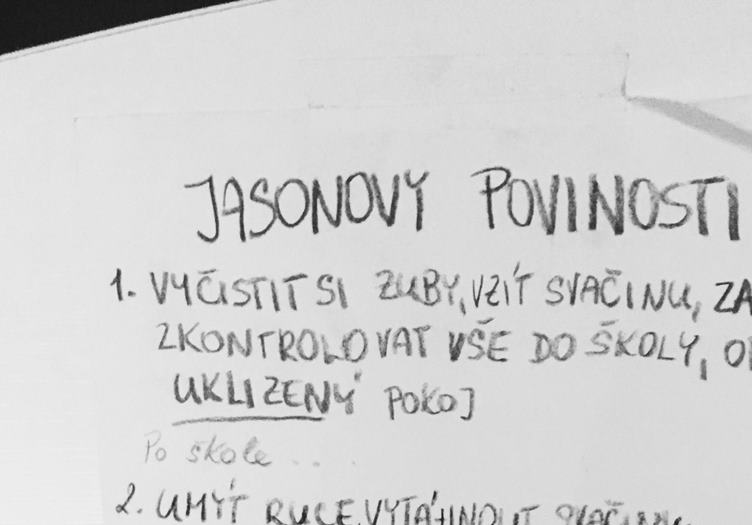 JASONOVY POVINOSTI
1. VYČISTIT SI ZUBY, VZÍT SVAČINU, ZA
ZKONTROLOVAT VŠE DO ŠKOLY,
UKLIZENÝ POKOJ
Po škole ...
2. UMÝT RUCE, VYTÁHNOUT SVAČINU